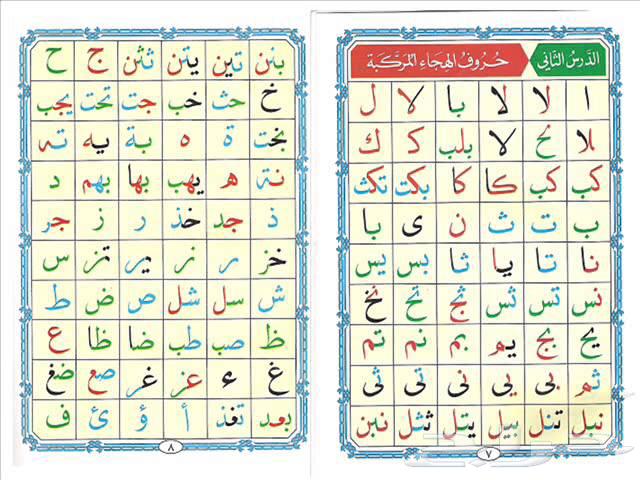 الدَّرْسُ الثَّانِي
حُرُوفُ الهِجَاءِ المُرَكَّبَة
ا لا لا با لا ل
لا بلب ك ك
كب كب كا كا بكت تكث
ب ت ث ن ى با
نا تا يا ثا بس يس
نس تس ثس ثج تح نخ
يح بج يم بم نم تم
ثم بى يى نى تى ثى
نبل تنل بيل يتل ثثل نبن
٧
بنن تين يتن ثثن ج ح
خ حث خب جت تحت يجب
نخت ة ه بة يه ته
نة ه يهب بها بهم د
ذ جد خذ ر ز جر
خز ر ز ير تز س
ش سل شل ص ض ط
ظ صب طب ضا ظا ع
غ ء عز غر صع ضغ
بعد تغذ أ ؤ ئ ف
٨